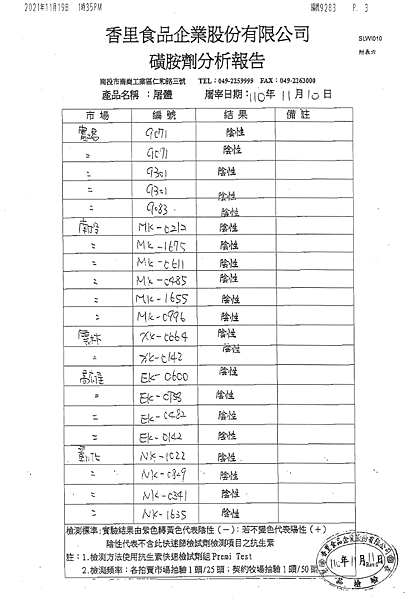 2021年11月19日 1時35PM 編號9283 P. 3
香里食品企業股份有限公司
SLWI010
附表六
磺胺劑分析報告
南投市南崗工業區仁和路三號 TEL：049-2259999 FAX：049-2263000
產品名稱：屠體 屠宰日期：110年11月10日
市場 編號 結果 備註
9071 陰性
〃 9071 陰性
〃 9301 陰性
〃 9301 陰性
〃 9083 陰性
南投 MK-0212 陰性
〃 MK-1675 陰性
〃 MK-0611 陰性
〃 MK-0485 陰性
〃 MK-1655 陰性
〃 MK-0996 陰性
雲林 XK-0664 陰性
〃 XK-0142 陰性
高雄 EK-0600 陰性
〃 EK-0758 陰性
〃 EK-0482 陰性
〃 EK-0142 陰性
彰化 NK-1022 陰性
〃 NK-0829 陰性
〃 NK-0341 陰性
〃 NK-1635 陰性
檢測標準：實驗結果由紫色轉黃色代表陰性(－)；若不變色代表陽性(＋)
陰性代表不含此快速篩檢試劑檢測項目之抗生素
註：1.檢測方法使用抗生素快速檢試劑組 Premi Test
2.檢測頻率：各拍賣市場抽驗1頭/25頭；契約牧場抽驗1頭/50頭
香里食品企業股份有限公司
110年11月11日
品檢驗